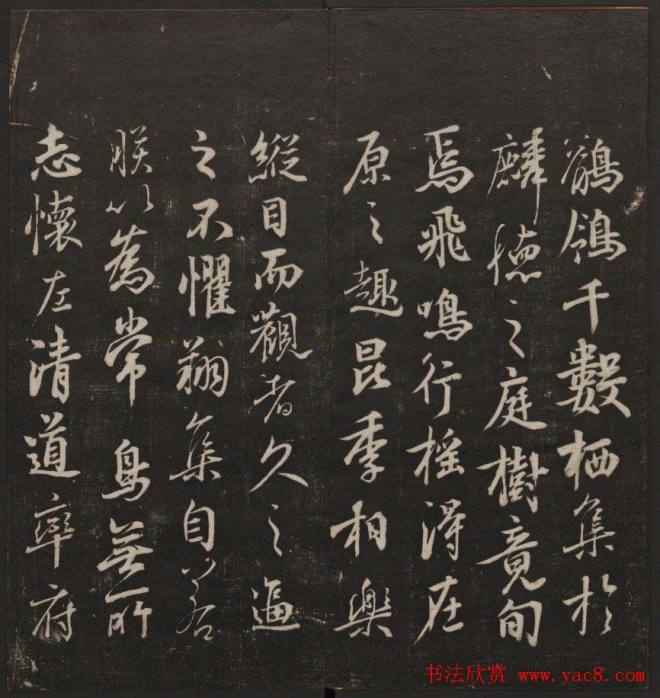 鶺鴒千數栖集於
麟德之庭樹竟旬
焉飛鳴行摇得在
原之趣昆季相樂
縱目而觀者久之逼
之不懼翔集自若
朕以為常鳥無所
志懷左清道率府
书法欣赏 www.yac8.com